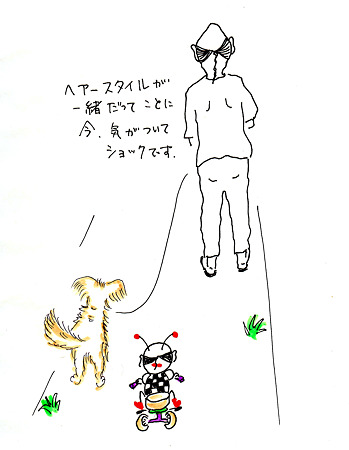 ヘアースタイルが
一緒だってことに
今、気がついて
ショックです.